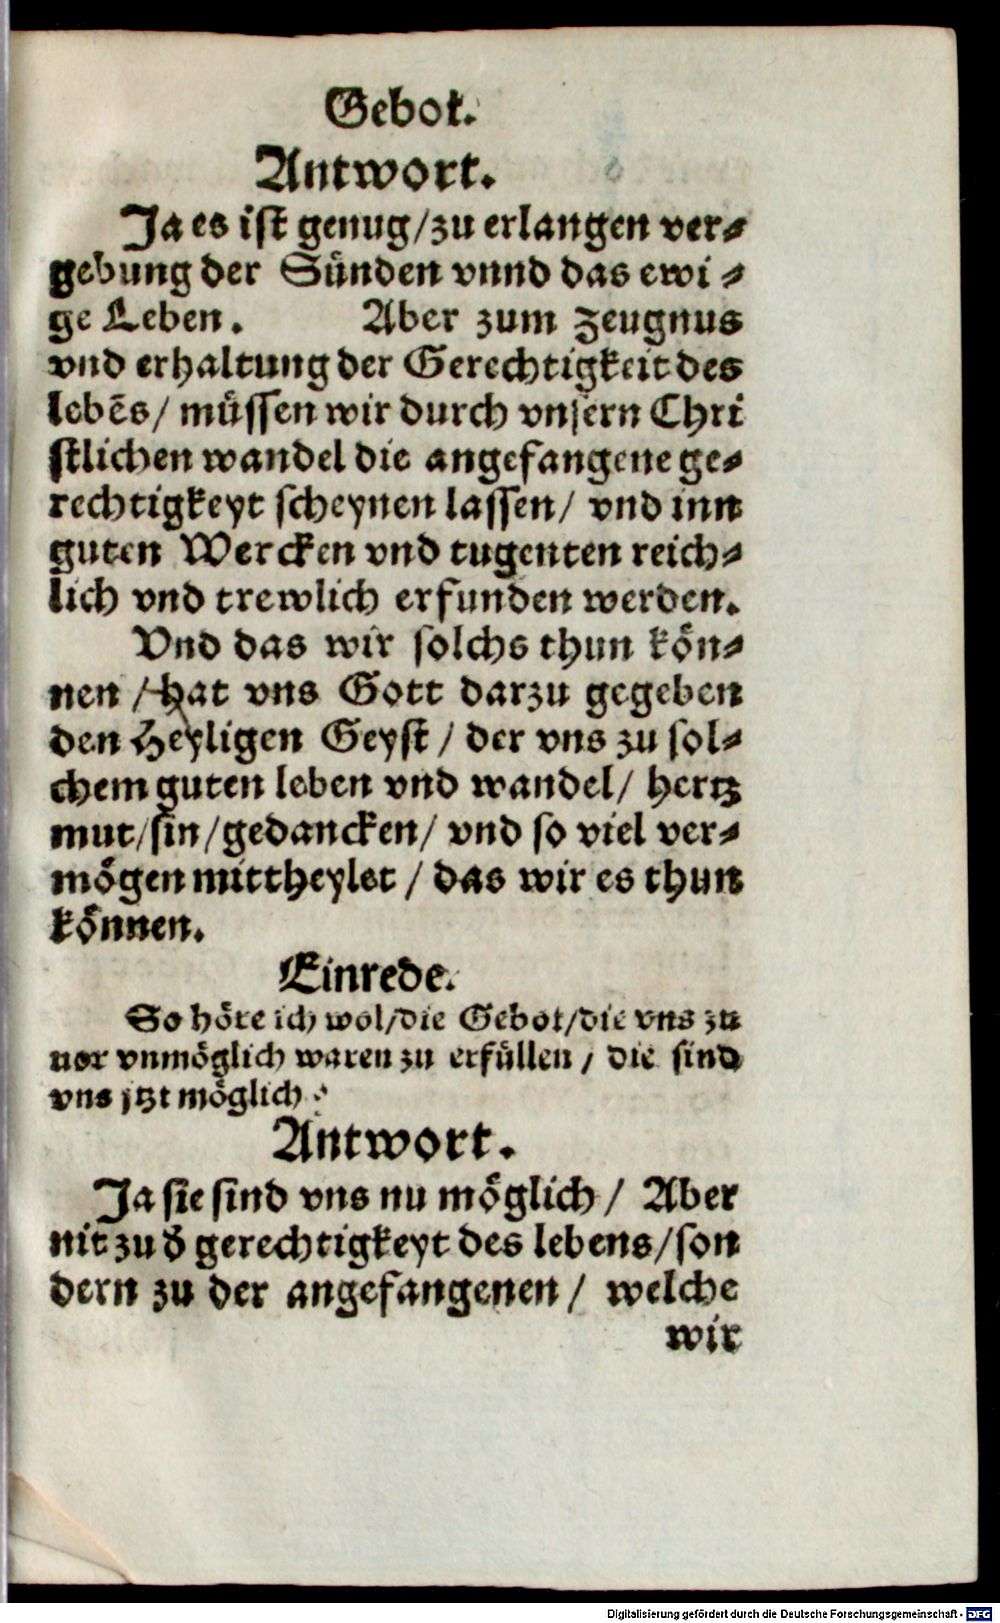 Gebot.
Antwort.
Ja es iſt genug/zu erlangen ver⸗
gebung der Sünden vnnd das ewi⸗
ge Leben. Aber zum Zeugnus
vnd erhaltung der Gerechtigkeit des
lebẽs/ müſſen wir durch vnſern Chri
ſtlichen wandel die angefangene ge⸗
rechtigkeyt ſcheynen laſſen/ vnd inn
guten Wercken vnd tugenten reich⸗
lich vnd trewlich erfunden werden.
Vnd das wir ſolchs thun kön⸗
nen / hat vns Gott darzu gegeben
den Heyligen Geyſt / der vns zu ſol⸗
chem guten leben vnd wandel/ hertz
mut/ſin/gedancken/ vnd ſo viel ver⸗
mögen mittheylet / das wir es thun
können.
Einrede.
So höre ich wol/die Gebot/die vns zu
uor vnmöglich waren zu erfüllen / die ſind
vns jtzt möglich?
Antwort.
Ja ſie ſind vns nu möglich / Aber
nit zu d̕ gerechtigkeyt des lebens/ſon
dern zu der angefangenen / welche
wir
Digitalisierung gefördert durch die Deutsche Forschungsgemeinschaft - DFG